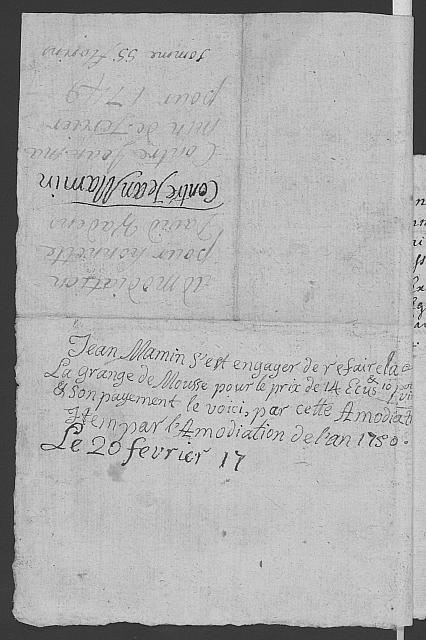 Admodiation
pour honnette
David Wadens
Contre Jean Mamin
Contre Jean ma
min de ferrier
pour 1749
somme 55 florins
Jean Mamin s'est engager de refaire la
La grange de Mousse pour le prix de 14 Ecus & 10
& Son payement le voici, par cette Amodiati
Item par l'Amodiation de l'an 1750.
Le 20 fevrier 17